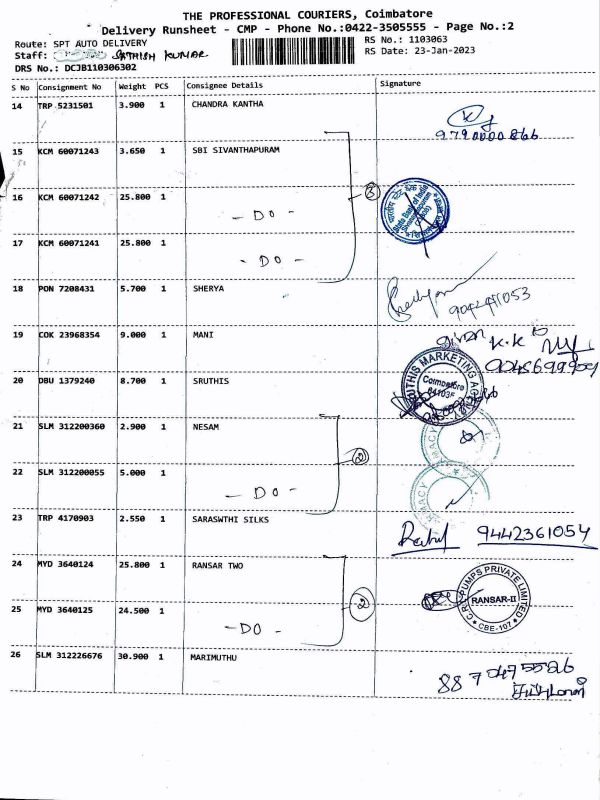 THE PROFESSIONAL COURIERS, Coimbatore
Delivery Runsheet - CMP - Phone No.:0422-3505555 - Page No.:2
Route: SPT AUTO DELIVERY
RS No.: 1103063
Staff: SATHISH KUMAR
RS Date: 23-Jan-2023
DRS No.: DCJB110306302
S No Consignment No Weight PCS Consignee Details Signature
14 TRP 5231501 3.900 1 CHANDRA KANTHA
9790000866
15 KCM 60071243 3.650 1 SBI SIVANTHAPURAM
16 KCM 60071242 25.800 1 - DO - 3
State Bank of India
17 KCM 60071241 25.800 1 - DO -
18 PON 7208431 5.700 1 SHERYA
19 COK 23968354 9.000 1 MANI K.K
20 DBU 1379240 8.700 1 SRUTHIS
SRUTHIS MARKETING
Coimbatore
21 SLM 312200360 2.900 1 NESAM 2
22 SLM 312200055 5.000 1 - DO -
23 TRP 4170903 2.550 1 SARASWTHI SILKS
9442361054
24 MYD 3640124 25.800 1 RANSAR TWO 2
C.R.I. PUMPS PRIVATE LIMITED
RANSAR-II
CBE-107
25 MYD 3640125 24.500 1 - DO -
26 SLM 312226676 30.900 1 MARIMUTHU
8870475526